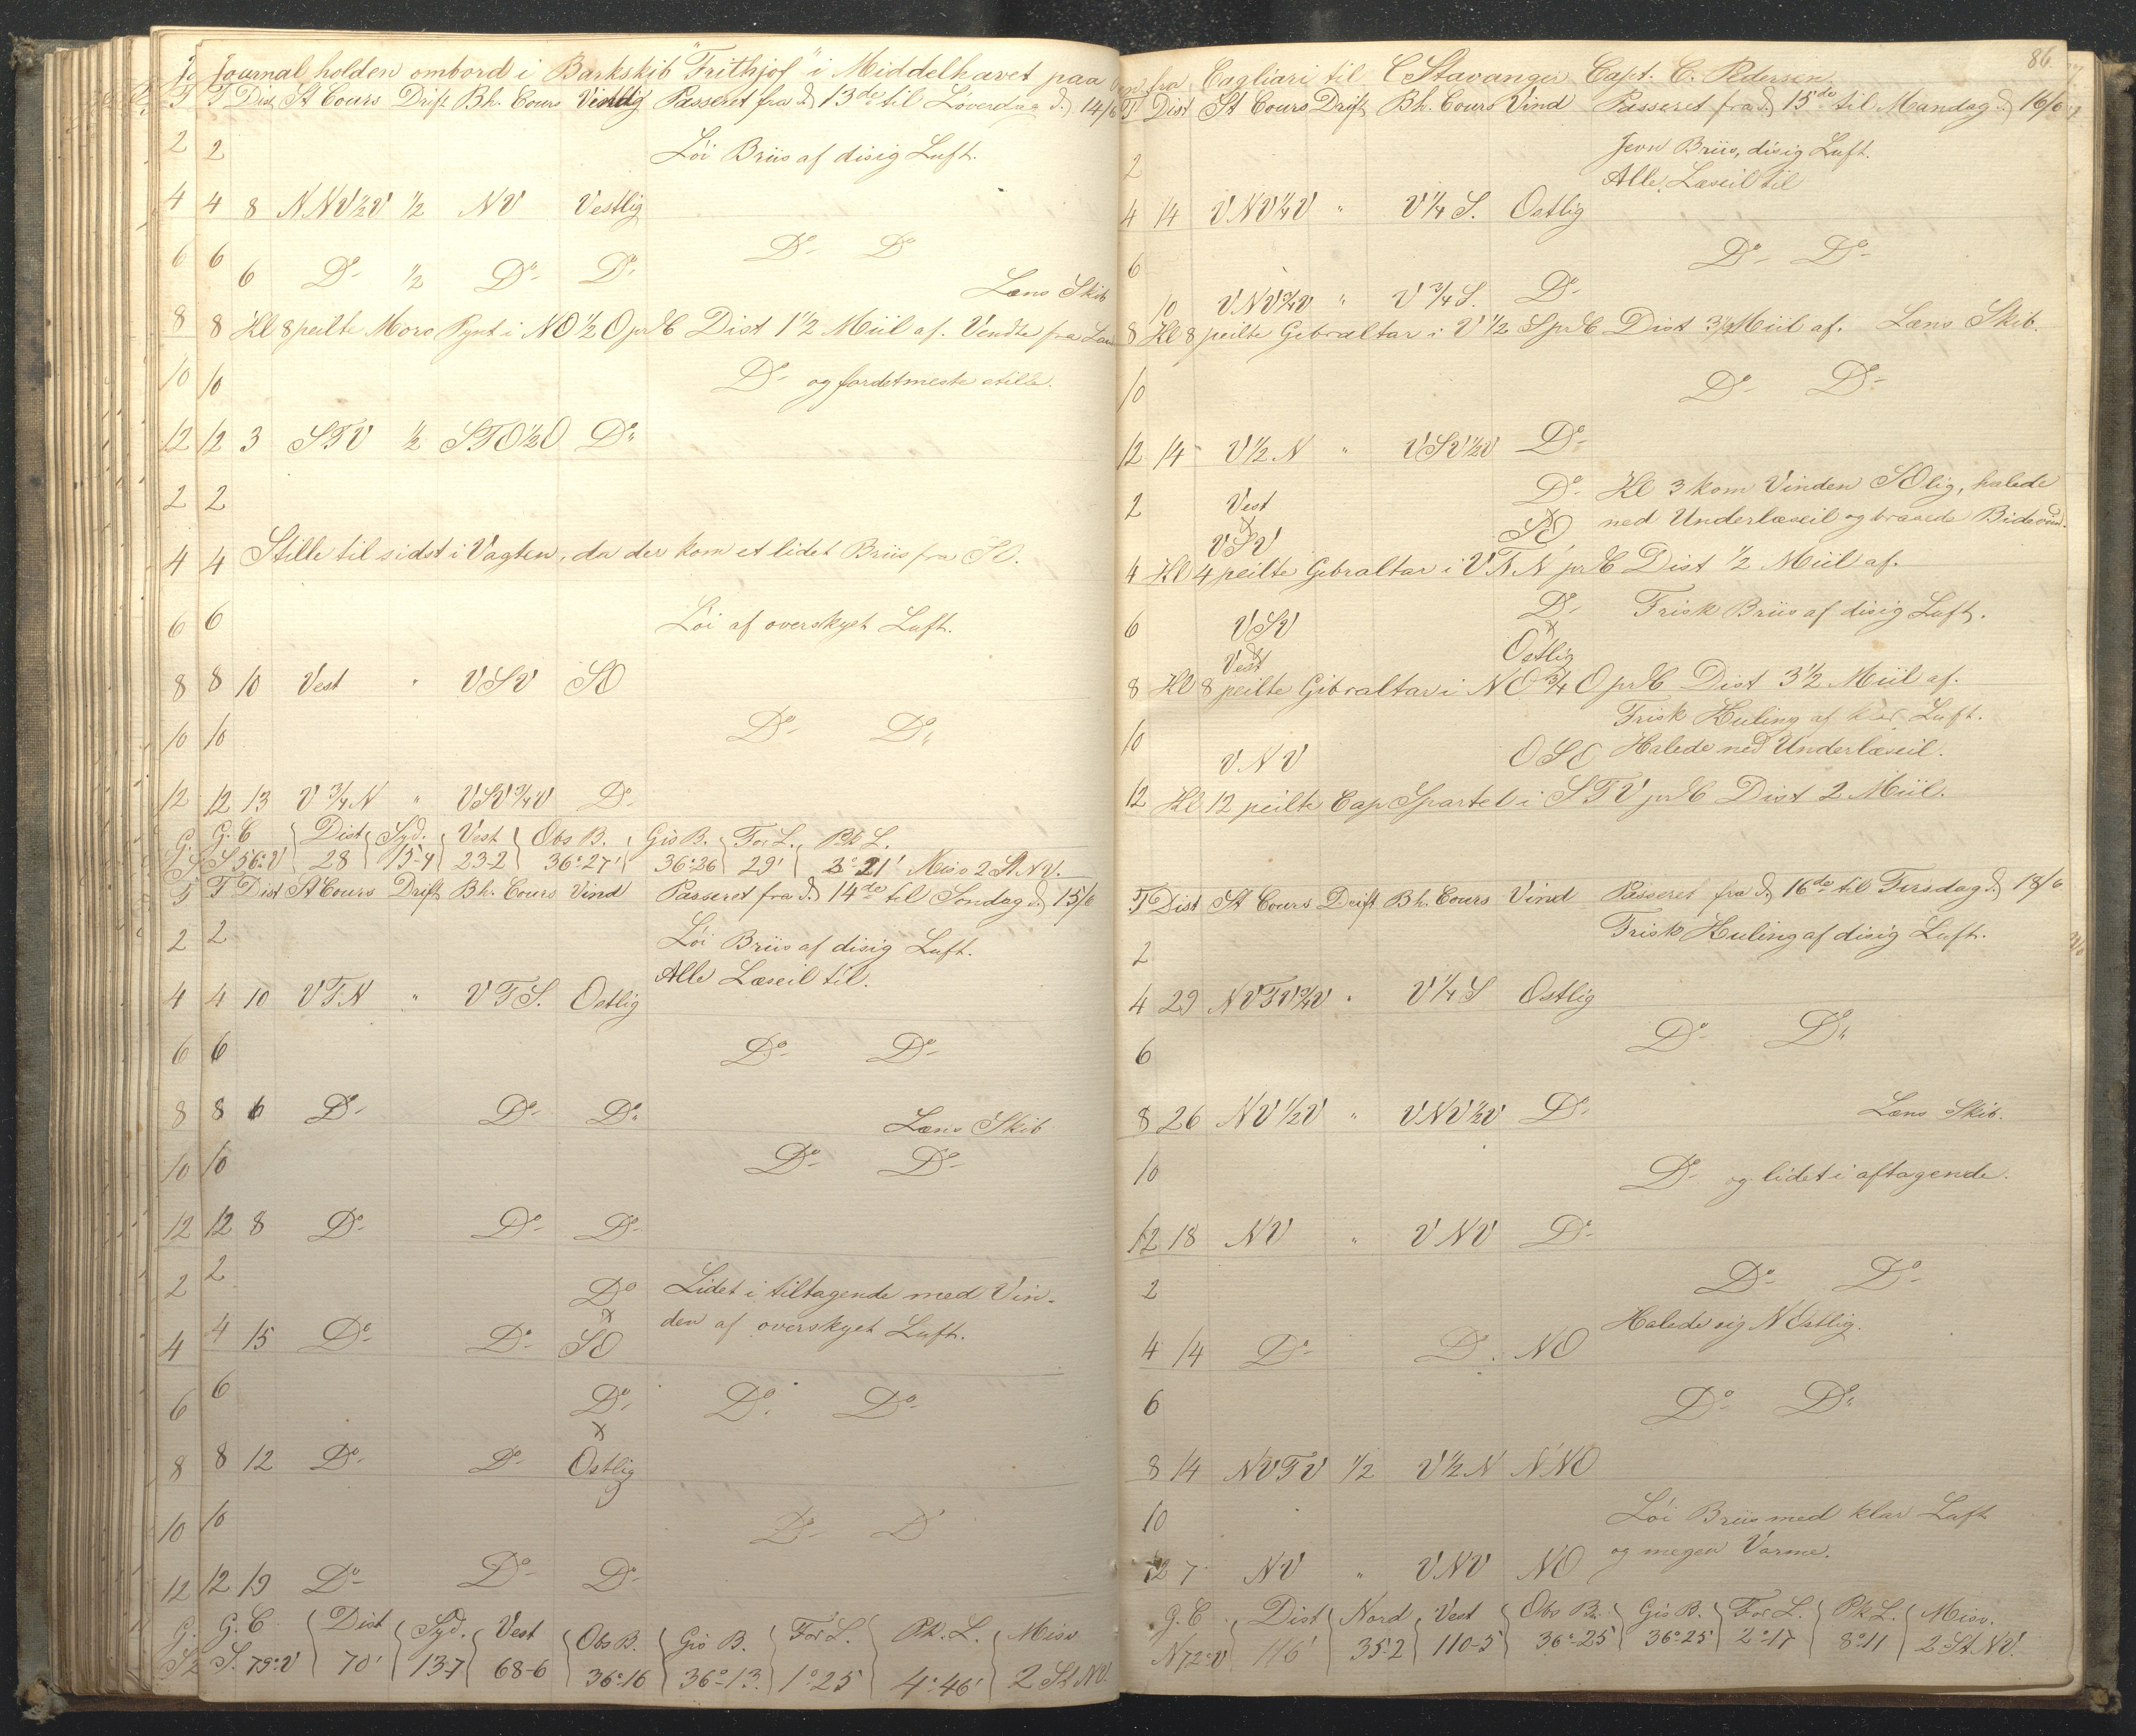 Journal holden ombord i Barkskib "Frithjof" i Middelhavet paa
T Dist St Cours Drift Bh. Cours Vind Passeret fra d. 13de til Löverdag d. 14/6
2 Löi Briis af disig Luft.
4 8 NNV½V ½ NV Vestlig
6 Do Do
6 Do ½ Do Do
Læns Skib
8 Kl 8 peilte Moro Pynt i NO½O pr C Dist 1½ Miil af. Vendte fra Lan
10 Do og fordetmeste stille.
12 3 STV ½ STO½O Do
2
4 Stille til sidst i Vagten, da der kom et lidet Briis fra SO.
6 Löi af overskyet Luft.
8 10 Vest " VSV SO
10 Do Do
12 13 V¾N " VSV¾V Do
G. C Dist Syd. Vest Obs B. Gis B. For L. Pk L.
S 56° V 28 15-4 23-2 36°27' 36°26 29' 3°21' Misv 2 St NV.
T Dist St Cours Drift Bh. Cours Vind Passeret fra d. 14de til Söndag d. 15/6
2 Löi Briis af disig Luft.
Alle Læseil til.
4 10 VTN " VTS. Ostlig
6 Do Do
8 6 Do Do Do
Læns Skib
10 Do Do
12 8 Do Do Do
2 Do Lidet i tiltagende med Vin-
den af overskyet Luft.
4 15 Do Do SO
6 Do Do Do
8 12 Do Do Ostlig
10 Do D
12 19 Do Do Do
G. C Dist Syd. Vest Obs B. Gis B. For L. Pk. L. Misv
S. 79° V 70' 13-7 68-6 36°16 36°-13 1°25 4°46' 2 St NV.
86
fra Cagliari til Stavanger Capt. C. Pedersen.
T Dist St Cours Drift Bh. Cours Vind Passeret fra d. 15de til Mandag d. 16/6
2 Jevn Briis, disig Luft.
Alle Læseil til
4 14 VNV¼V " V¼S. Ostlig
6 Do Do
10 VNV¾V " V¾S. Do
8 Kl 8 peilte Gibraltar i V½S pr C Dist 3½ Miil af. Læns Skib.
10 Do Do
12 14 V½N " VSV½V Do
2 Vest Do Kl 3 kom Vinden SOlig, halede
VSV SO ned Underlæseil og brasede Bidevind.
4 Kl 4 peilte Gibraltar i VTN pr C Dist ½ Miil af.
6 VSV Do Frisk Briis af disig Luft.
Vest Ostlig
8 Kl 8 peilte Gibraltar i NO¾O pr C Dist 3½ Miil af.
Frisk Kuling af klar Luft.
10 VNV OSO Halede ned Underlæseil.
12 Kl 12 peilte Cap Spartel i STV pr C Dist 2 Miil.
T Dist St Cours Drift Bh. Cours Vind Passeret fra d. 16de til Tirsdag d. 18/6
2 Frisk Kuling af disig Luft.
4 29 NVTV¾V " V¼S Ostlig
6 Do Do
8 26 NV½V " VNV½V Do Læns Skib.
10 Do og lidet i aftagende.
12 18 NV " VNV Do
2 Do Do
Halede sig NOstlig.
4 14 Do Do NO
6 Do Do
8 14 NVTV ½ V½N NNO
10 Löi Briis med klar Luft
og megen Varme.
12 7 NV " VNV NO
G. C Dist Nord Vest Obs B. Gis B. For L. Pk L. Misv.
N 72° V 116' 35-2 110-5 36°-25 36°25 2°17 8°11 2 St NV.